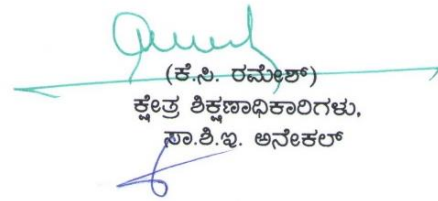 (ಕೆ.ಸಿ. ರಮೇಶ್)
ಕ್ಷೇತ್ರ ಶಿಕ್ಷಣಾಧಿಕಾರಿಗಳು,
ಸಾ.ಶಿ.ಇ. ಅನೇಕಲ್